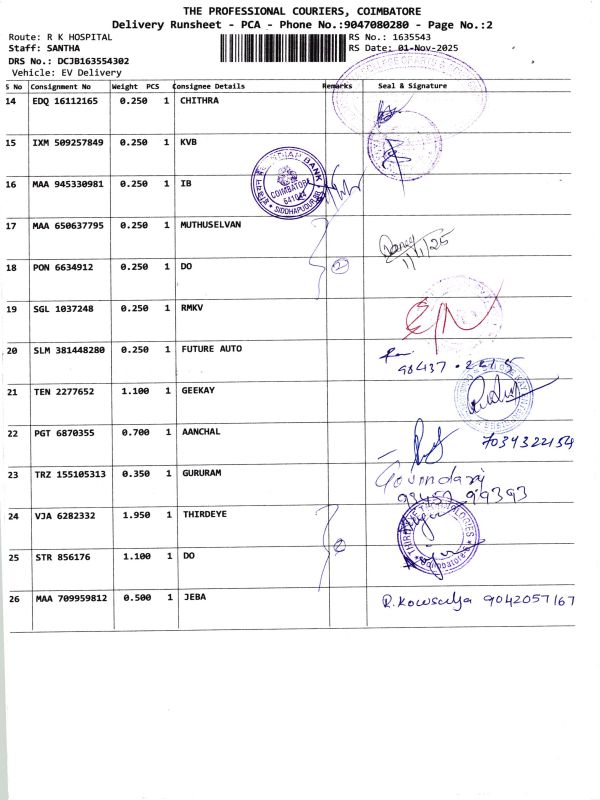 THE PROFESSIONAL COURIERS, COIMBATORE
Delivery Runsheet - PCA - Phone No.:9047080280 - Page No.:2
Route: R K HOSPITAL
RS No.: 1635543
Staff: SANTHA
RS Date: 01-Nov-2025
DRS No.: DCJB163554302
Vehicle: EV Delivery
S No Consignment No Weight PCS Consignee Details Remarks Seal & Signature
14 EDQ 16112165 0.250 1 CHITHRA
15 IXM 509257849 0.250 1 KVB
16 MAA 945330981 0.250 1 IB
BANK
COIMBATORE
SIDDHAPUDUR
17 MAA 650637795 0.250 1 MUTHUSELVAN
1/11/25
18 PON 6634912 0.250 1 DO
2
19 SGL 1037248 0.250 1 RMKV
20 SLM 381448280 0.250 1 FUTURE AUTO
21 TEN 2277652 1.100 1 GEEKAY
22 PGT 6870355 0.700 1 AANCHAL
7034322154
23 TRZ 155105313 0.350 1 GURURAM
24 VJA 6282332 1.950 1 THIRDEYE
TECHNOLOGIES
25 STR 856176 1.100 1 DO
2
26 MAA 709959812 0.500 1 JEBA R.Kowsalya 9042057167